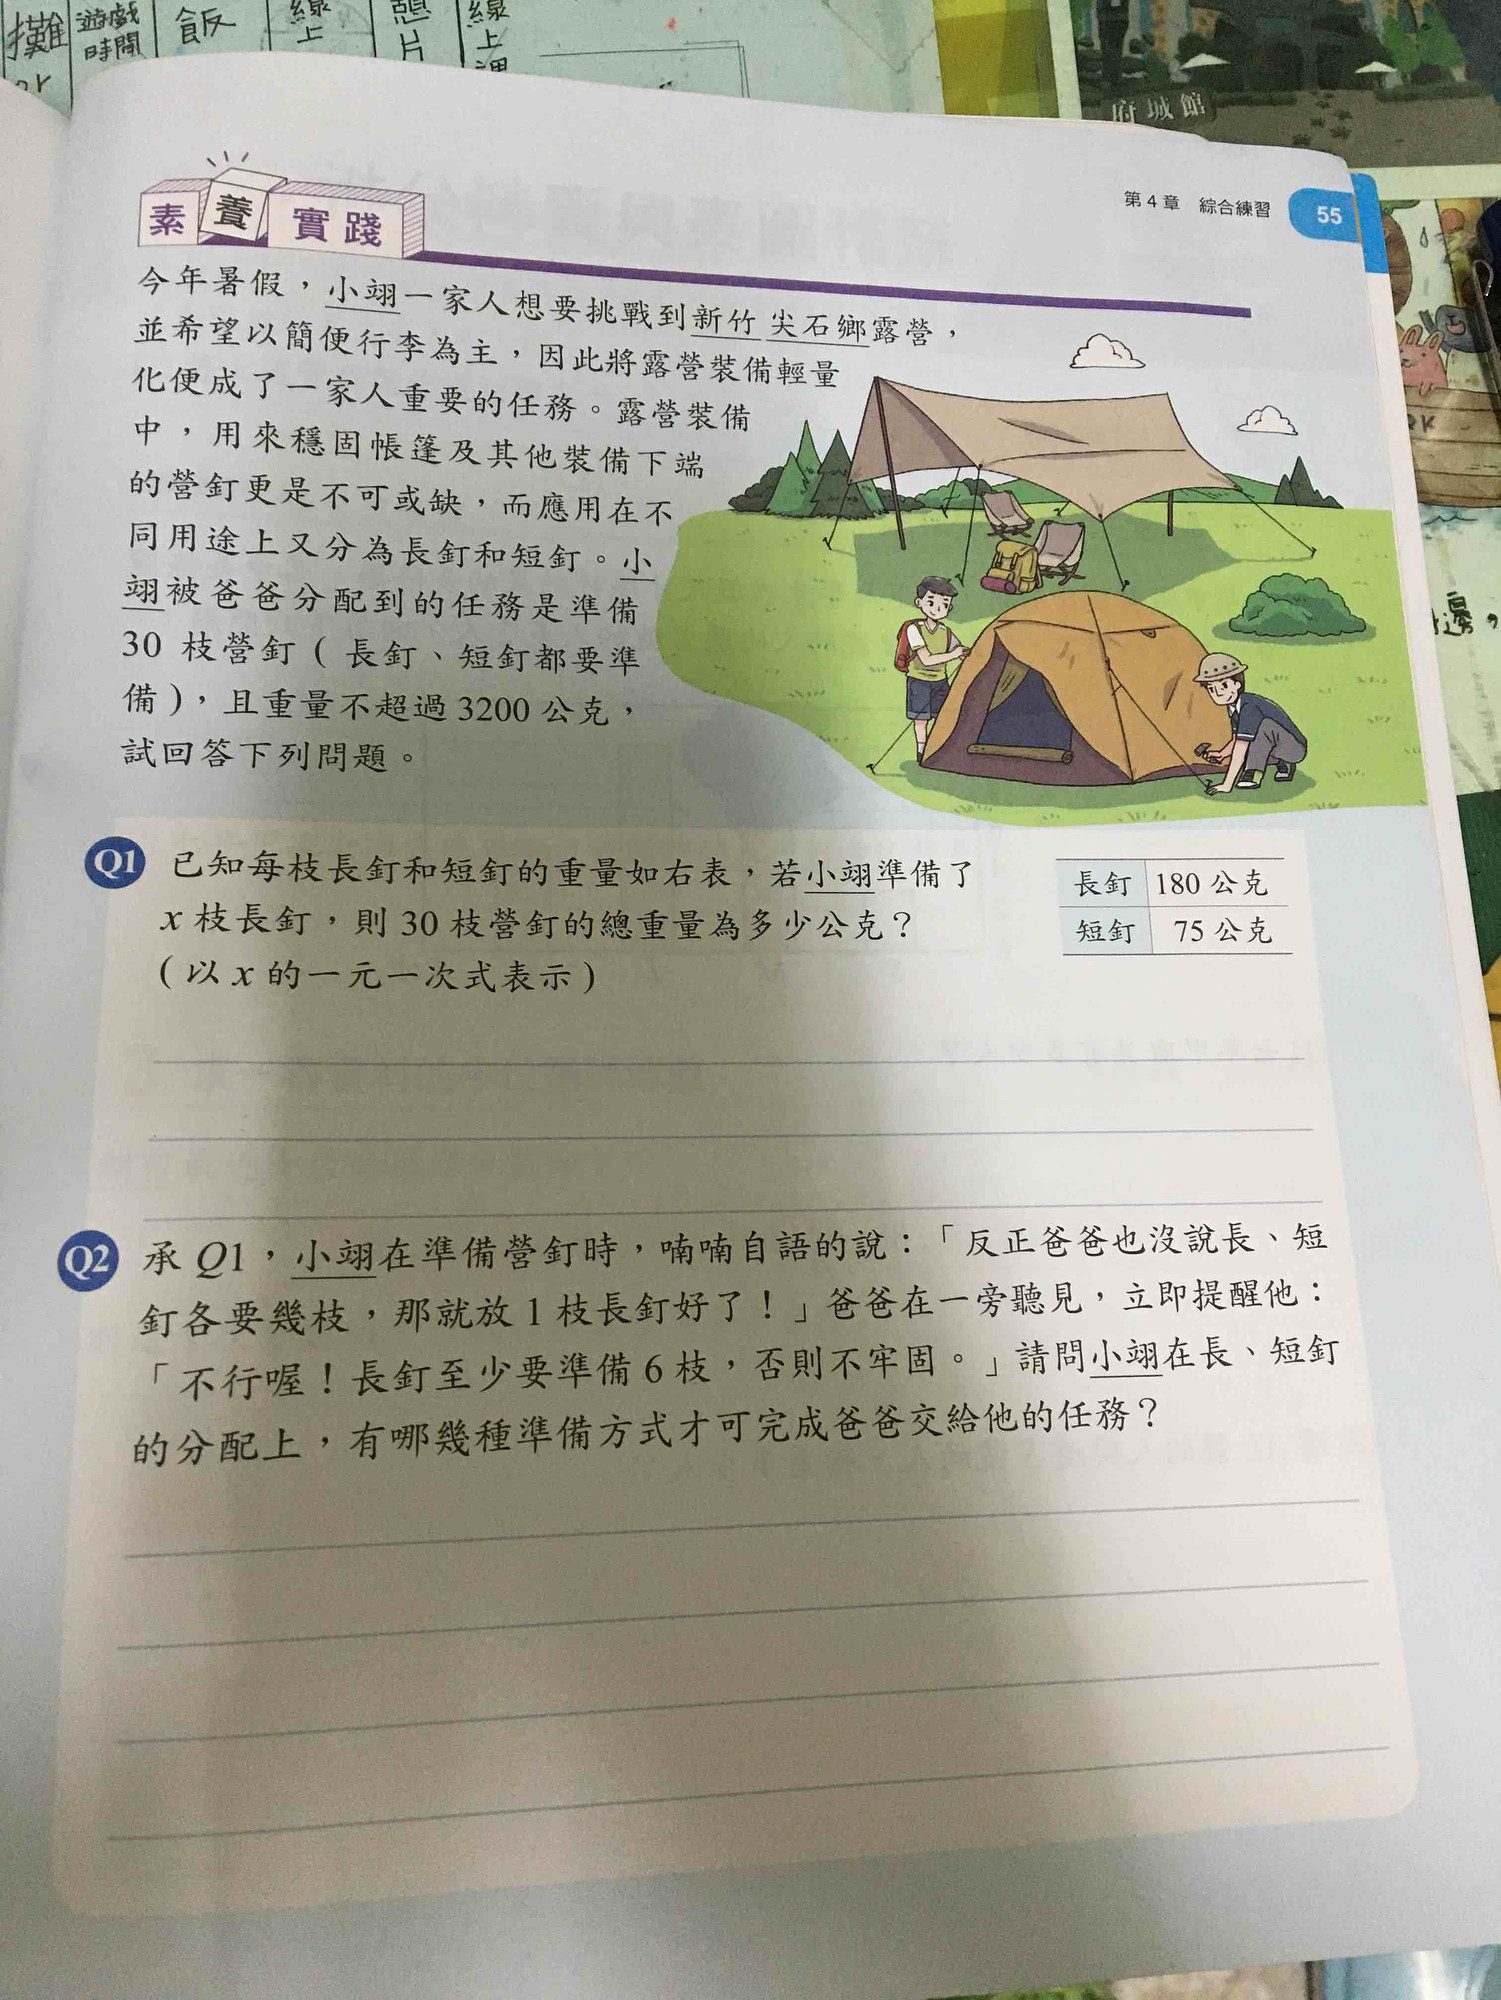 攤
遊戲
時間
飯
線
上
憩
片
線
上
課
府城館
第4章 綜合練習
55
素養實踐
今年暑假，小翊一家人想要挑戰到新竹尖石鄉露營，
並希望以簡便行李為主，因此將露營裝備輕量
化便成了一家人重要的任務。露營裝備
中，用來穩固帳篷及其他裝備下端
的營釘更是不可或缺，而應用在不
同用途上又分為長釘和短釘。小
翊被爸爸分配到的任務是準備
30 枝營釘（長釘、短釘都要準
備），且重量不超過 3200 公克，
試回答下列問題。
Q1 已知每枝長釘和短釘的重量如右表，若小翊準備了
x 枝長釘，則 30 枝營釘的總重量為多少公克？
（以 x 的一元一次式表示）
長釘 180 公克
短釘 75 公克
Q2 承 Q1，小翊在準備營釘時，喃喃自語的說：「反正爸爸也沒說長、短
釘各要幾枝，那就放 1 枝長釘好了！」爸爸在一旁聽見，立即提醒他：
「不行喔！長釘至少要準備 6 枝，否則不牢固。」請問小翊在長、短釘
的分配上，有哪幾種準備方式才可完成爸爸交給他的任務？
邊，